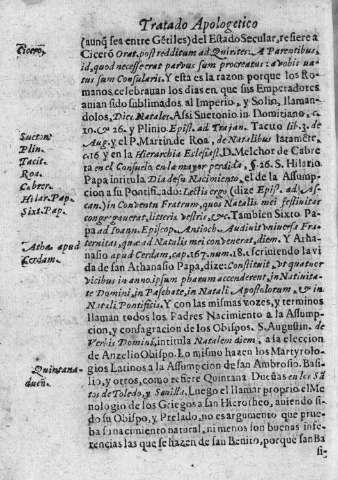 Tratado Apologetico
(aunq sea entre Gētiles) del Estado Secular, refiere a
Cicerō Orat. post redditum ad Quirites: A Parentibus
id, quod necesse erat parbus sum procreatus: a vobis na-
tus sum Consularis. Y esta es la razon porque los Ro-
manos celebrauan los dias en que sus Emperadores
auian sido sublimados al Imperio, y Solio, llaman-
dolos, Dies Natales. Assi Suetonio in Domitiano, c.
10. & 26. y Plinio Epist. ad Trajan. Tacito lib. 3. de
Aug. y el P. Martin de Roa, de Natalibus latamēte,
c. 16 y en la Hierarchia Eclesiast. D. Melchor de Cabre
ra en el Consuelo en la mayor perdida, §. 26. S. Hilario
Papa intitula Dia de su Nacimiento, el de la Assump-
cion a su Pontificado: Lectis ergo (dize Epist. ad As-
can.) in Conventu Fratrum, quos Natalis mei festinitas
congregauerat, litteris vestris, &c. Tambien Sixto Pa-
pa ad Ioann. Episcop. Antioch. Audinit universa Fra-
ternitas, quæ ad Natalis mei convenerat, diem. Y Atha-
nasio apud Cerdam, cap. 167. num. 18. escriuiendo la vi
da de san Athanasio Papa, dize: Constituit, vt quatuor
vicibus in anno ipsum pharum accenderent, in Nativita-
te Domini, in Paschate, in Natali Apostolorum, & in
Natali Pontificis. Y con las mismas vozes, y terminos
llaman todos los Padres Nacimiento a la Assump-
cion, y consagracion de los Obispos. S. Augustin. de
Verbis Domini, intitula Natalem diem, a la eleccion
de Anzelio Obispo. Lo mismo hazen los Martyrolo-
gios Latinos a la Assumpcion de san Ambrosio, Basi-
lio, y otros, como refiere Quintana Dueñas en los Sā-
tos de Toledo, y Sevilla. Luego el llamar proprio el Me
nologio de los Griegos a san Hierotheo, auiendo si-
do su Obispo, y Prelado, no es argumento que prue-
ba su nacimiento natural, ni menos son buenas infe-
rencias las que se hazen de san Benito, porque san Ba
si-
Cicerō.
Sueton.
Plin.
Tacit.
Roa.
Cabrer.
Hilar. Pap.
Sixt. Pap.
Atha. apud
Cerdam.
Quintana-
dueñ.